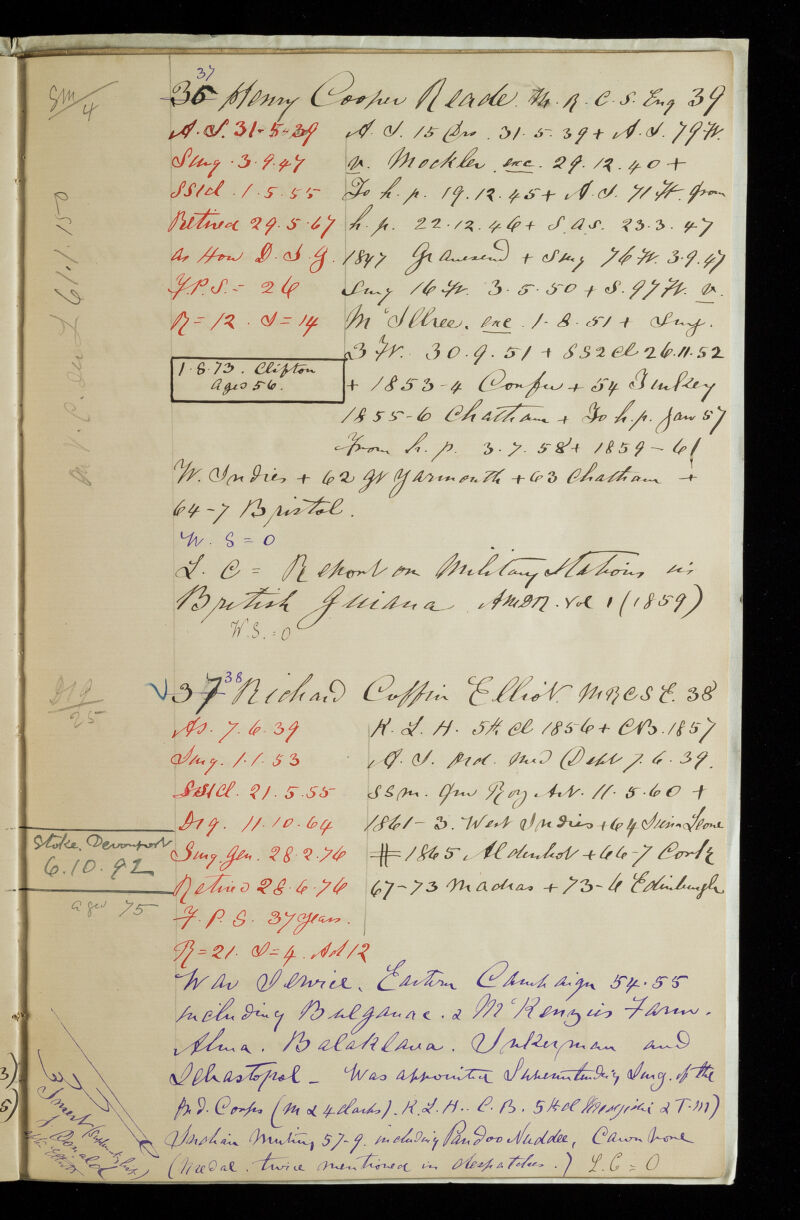 37
36 Henry Cooper Reade. M. R. C. S. Eng 39
A. S. 31-5-39
Surg. 3.9.47
SS1cl. 1.5.55
Retired 29.5.67
as Hon D. I. G.
F.P.S. = 26
R = 12. I = 14
1.8.73. Clifton
aged 56.
A. S. 15 Drs. 31.5.39 + A.S. 79 Ft.
v. Mockler. exc. 29.12.40 +
To h. p. 19.12.45 + A.S. 71 Ft. from
h. p. 22.12.46 + S.A.S. 23.3.47
1847 Gravesend + Surg 76 Ft. 3.9.47
Surg 16 Ft. 3.5.50 + S. 97 Ft. v.
McIllree. exc. 1.8.51 + Surg.
3 Ft. 30.9.51 + SS2cl 26.11.52
+ 1853-4 Corfu + 54 Turkey
1855-6 Chatham + To h.p. Jan 57
From h. p. 3.7.58 + 1859-61
W. Indies + 62 Gt Yarmouth + 63 Chatham +
64-7 Bristol.
W. S = 0
L. C = Report on Military Stations in
British Guiana. AMDR. Vol 1 (1859)
W.S. = 0
38
37 Richard Coffin Elliot. MRCSE. 38
As. 7.6.39
Surg. 1.1.53
SS1Cl. 21.5.55
DIG. 11.10.64
Surg. Gen. 28.2.76
Retired 28.6.76
F. P. S. 37 years.
R = 21. I = 4. Ad 12
K. L. H. 5th Cl 1856 + CB. 1857
A. S. Ord. Med Dept 7.6.39.
SSM. Roy Art. 11.5.60 +
1861-3. West Indies + 64 Sierra Leone
1865 Aldershot + 66-7 Cork
67-73 Madras + 73-6 Edinburgh
Stoke. Devonport
6.10.92
aged 75
War Service. Eastern Campaign 54.55
including Bulganac. & McKenzies Farm.
Alma. Balaklava. Inkerman and
Sebastopol - Was appointed Superintending Surg. of the
Ord. Corps (M & 4 clasps). K.L.H. C.B. 5th cl Medjidie & T.M)
Indian Mutiny 57-9. including Pandoo Nuddee, Cawnpore
(Medal. twice mentioned in despatches.) L.C = 0